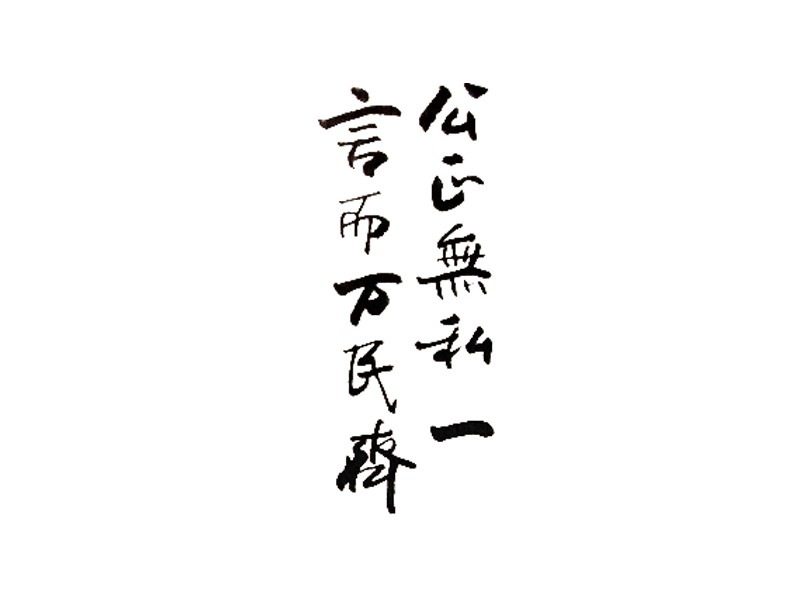 公正無私一
言而万民齊